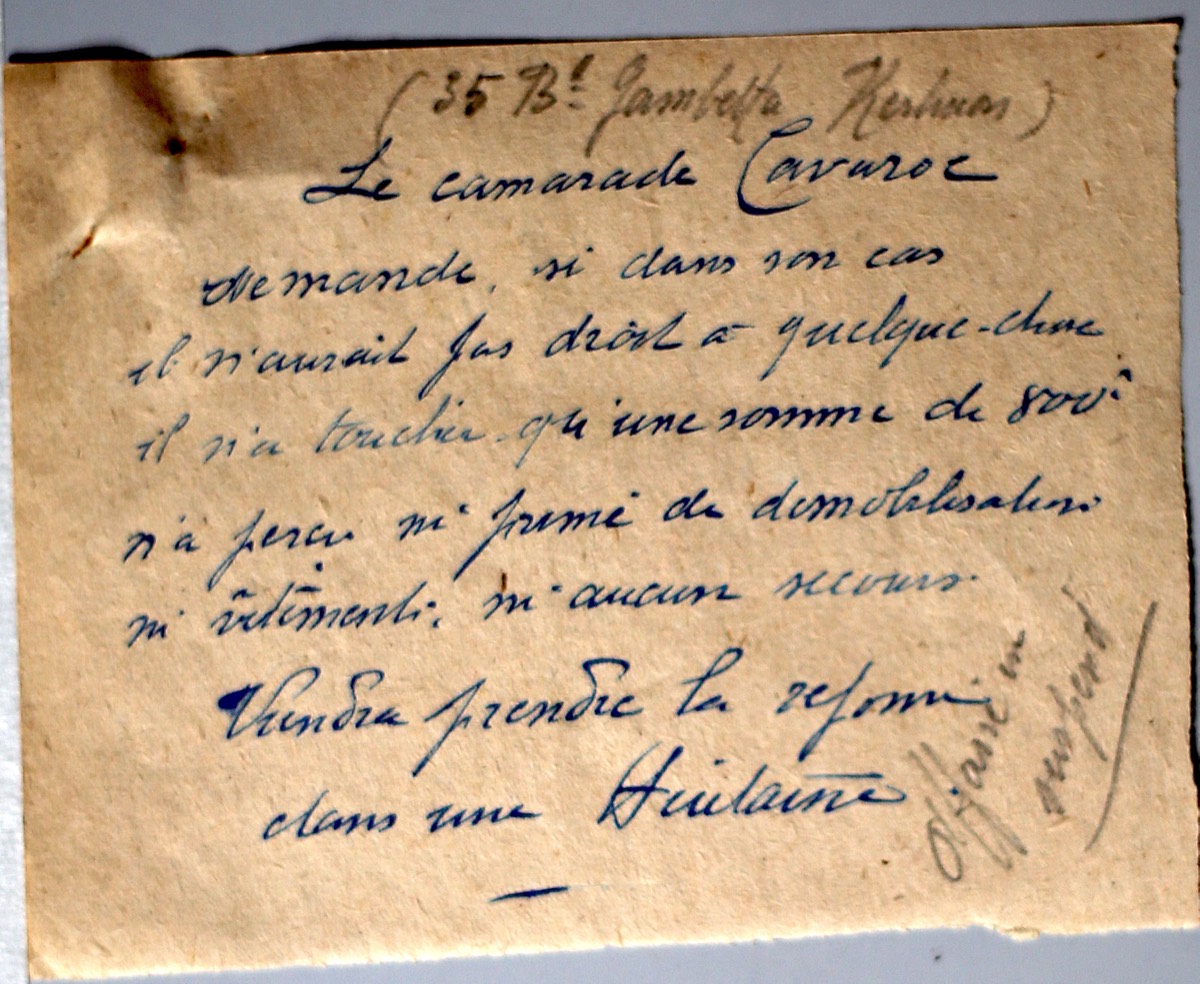 (35 Bd Gambetta Kerhuon)
Le camarade Cavaroc
demande, si dans son cas
il n'aurait pas droit à quelque-chose
il n'a touché qu'une somme de 800f
n'a perçu ni prime de démobilisation
ni vêtements, ni aucun secours.
Viendra prendre la réponse
dans une huitaine
affaire en
suspend